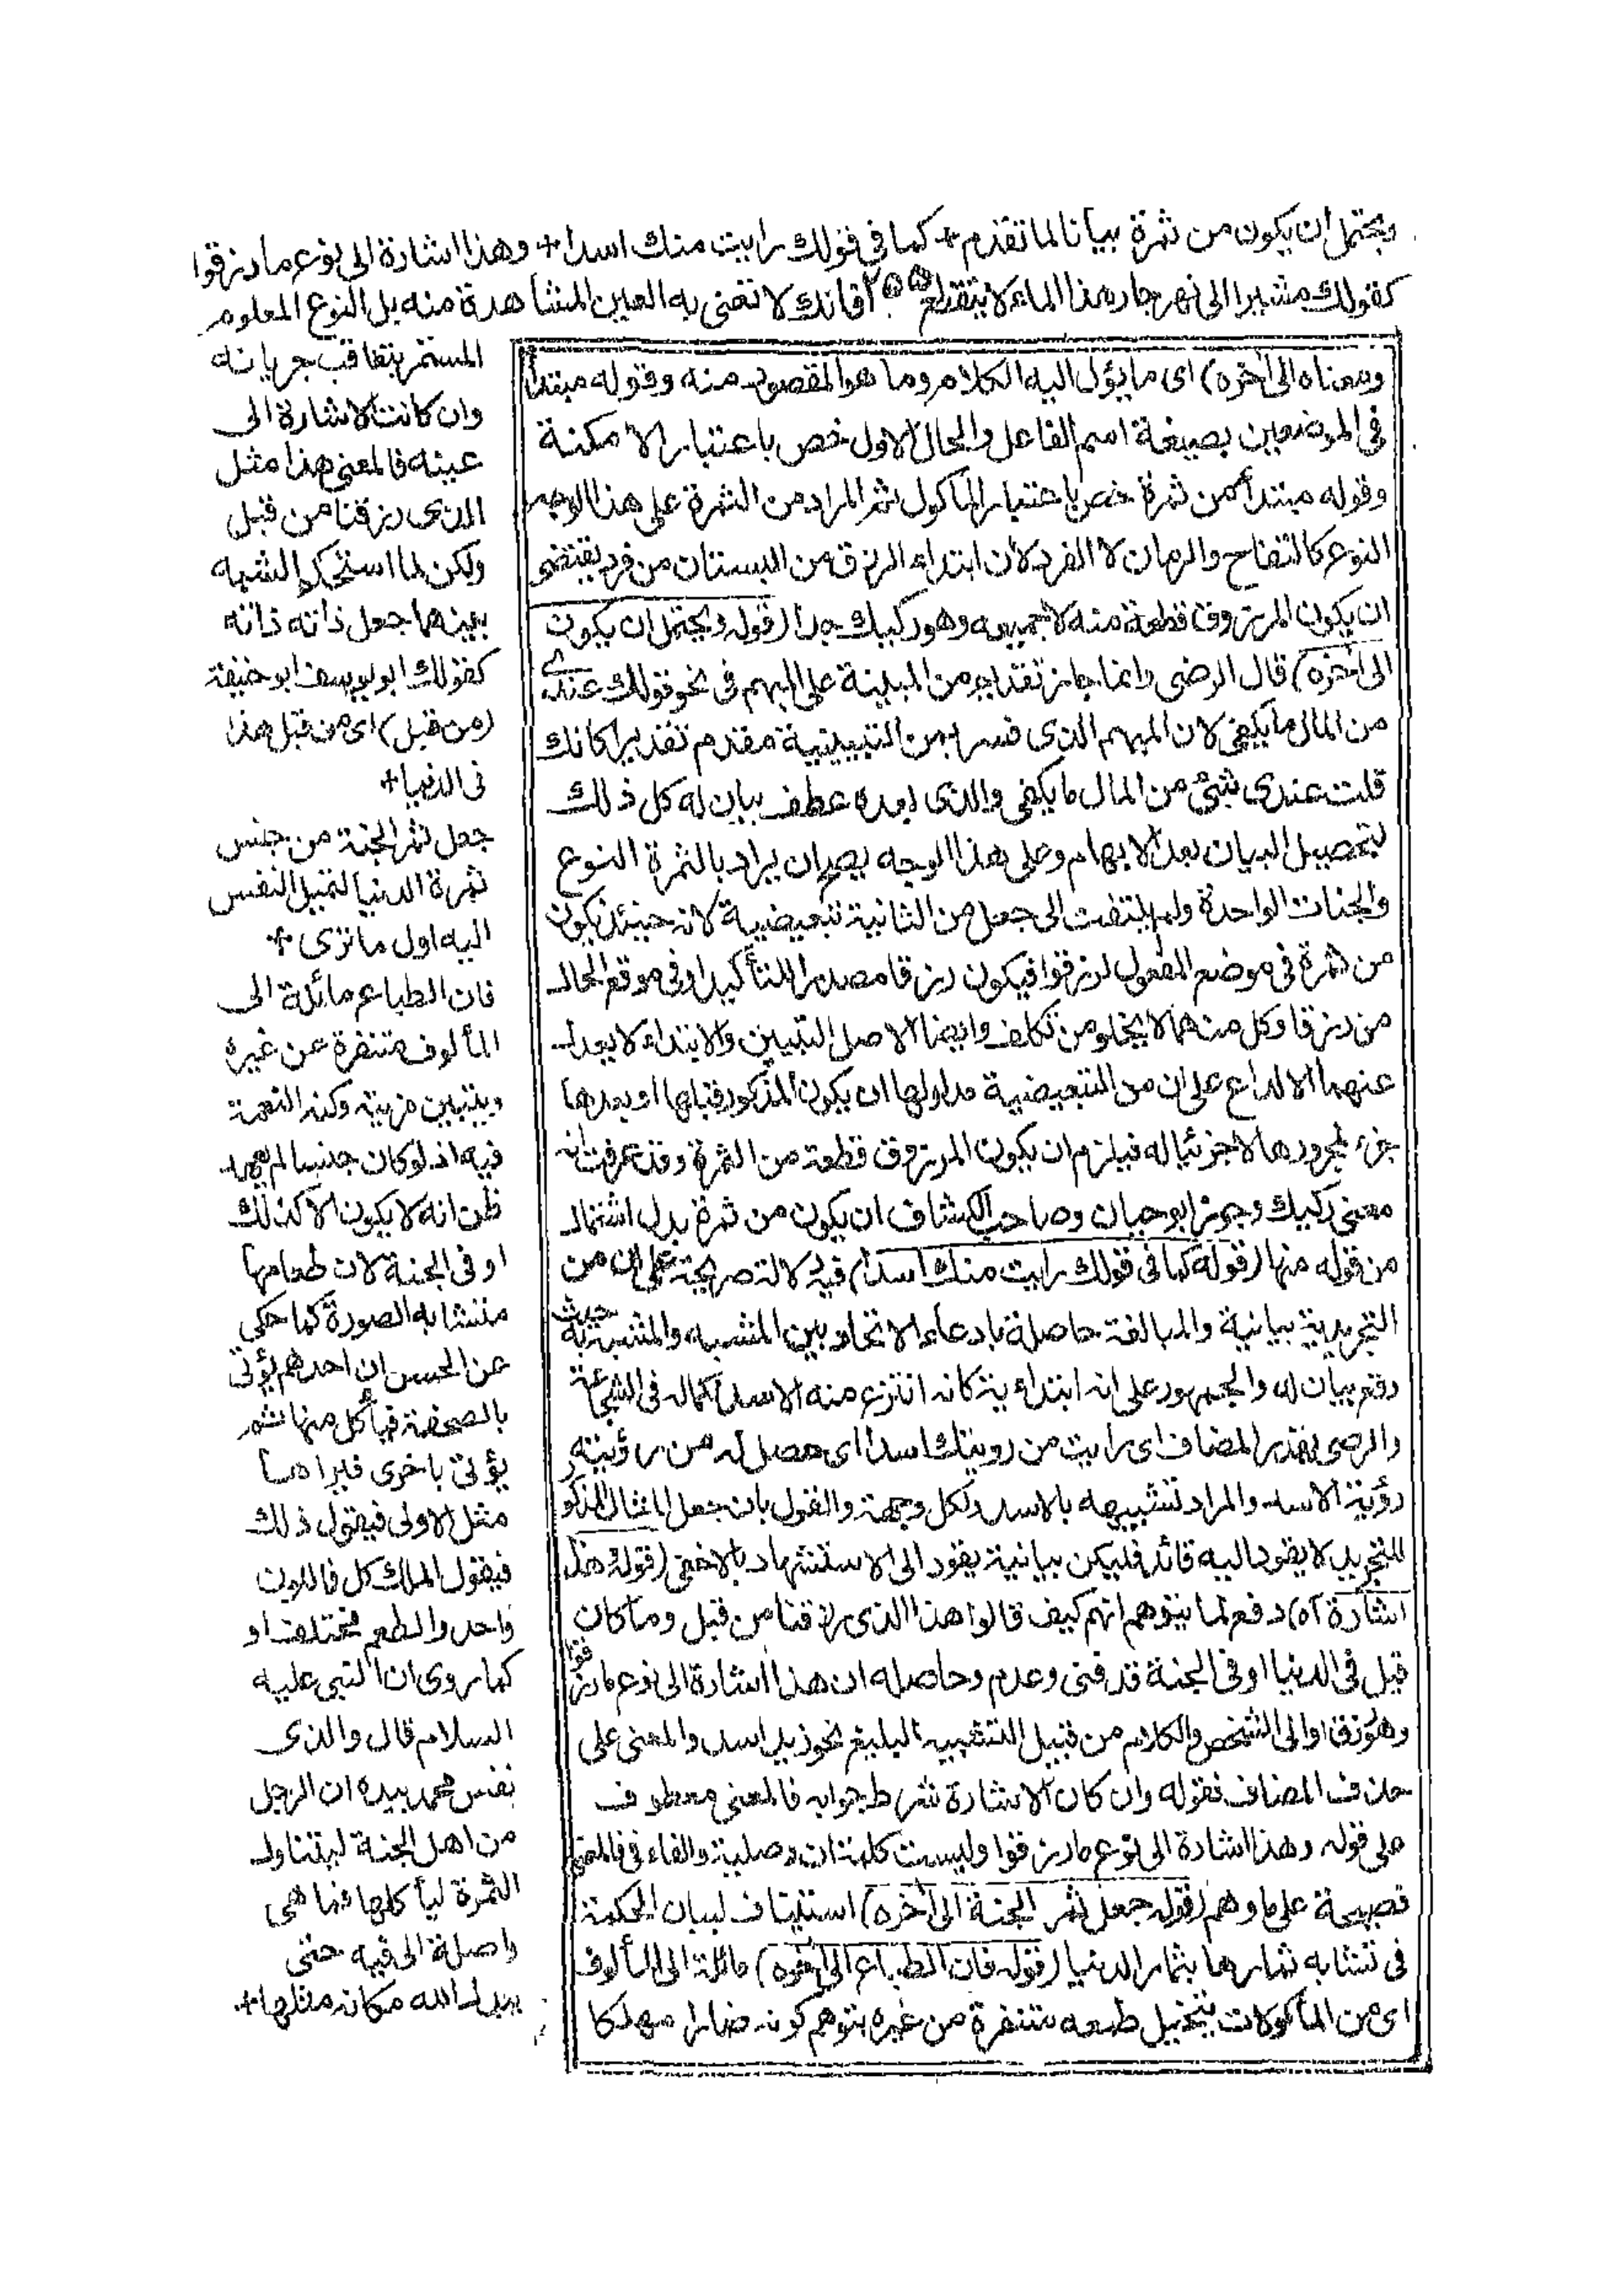 ويحتمل ان يكون من ثمرة بيانا لما تقدم + كما فى قولك رايت منك اسدا + وهذا اشارة الى نوع ما رزقوا
كقولك مشيرا الى نهر جار هذا الماء لا ينقطع فانك لا تعنى به العين المشاهدة منه بل النوع المعلوم
المستمر بتعاقب جريانه
وان كانت الاشارة الى
عينه فالمعنى هذا مثل
الذى رزقنا من قبل
ولكن لما استحكم الشبه
بينهما جعل ذاته ذاته
كقولك ابو يوسف ابو حنيفة
(من قبل) اى من قبل هذا
فى الدنيا +
جعل ثمر الجنة من جنس
ثمرة الدنيا لتميل النفس
اليه اول ما ترى +
فان الطباع مائلة الى
المألوف متنفرة عن غيره
ويتبين مزيته وكنه النعمة
فيه اذ لو كان جنسا لم يعهد
ظن انه لا يكون الا كذلك
او فى الجنة لان طعامها
متشابه الصورة كما حكى
عن الحسن ان احدهم يؤتى
بالصحفة فيأكل منها ثم
يؤتى باخرى فيراها
مثل الاولى فيقول ذلك
فيقول الملك كل فاللون
واحد والطعم مختلف او
كما روى ان النبى عليه
السلام قال والذى
نفس محمد بيده ان الرجل
من اهل الجنة ليتناول
الثمرة ليأكلها فما هى
واصلة الى فيه حتى
يبدل الله مكانه مثلها +
ومعناه الى آخره) اى ما يؤل اليه الكلام وما هو المقصود منه وقوله مبتدأ
فى الموضعين بصيغة اسم الفاعل والحال الاول خص باعتبار الامكنة
وقوله مبتدأ من ثمرة خص باعتبار المأكول ثم المراد من الثمرة على هذا الوجه
النوع كالتفاح والرمان لا الفرد لان ابتداء الرزق من البستان من فرد يقتضى
ان يكون المرزوق قطعة منه لا جميعه وهو ركيك جدا (قوله ويحتمل ان يكون
الى آخره) قال الرضى وانما جاز تقديم من المبينة على المبهم فى نحو قولك عندى
من المال ما يكفى لان المبهم الذى فسر بمن التبيينية مقدم تقديرا كانك
قلت عندى شئ من المال ما يكفى والذى بعده عطف بيان له كل ذلك
لتحصيل البيان بعد الابهام وعلى هذا الوجه يصح ان يراد بالثمرة النوع
والجنات الواحدة ولم يلتفت الى جعل من الثانية تبعيضية لانه حينئذ يكون
من ثمرة فى موضع المفعول لرزقوا فيكون رزقا مصدرا للتأكيد او فى موقع الحال
من رزقا وكل منهما لا يخلو من تكلف وايضا الاصل التبيين والابتداء لا يعدل
عنهما الا لداع على ان من التبعيضية مدلولها ان يكون المذكور قبلها او بعدها
جزء لمجرورها لا جزئيا له فيلزم ان يكون المرزوق قطعة من الثمرة وقد عرفت انه
معنى ركيك وجوز ابو حيان وصاحب الكشاف ان يكون من ثمرة بدل اشتمال
من قوله منها (قوله كما فى قولك رايت منك اسدا) فيه دلالة صريحة على ان من
التجريدية بيانية والمبالغة حاصلة بادعاء الاتحاد بين المشبه والمشبه به حيث
وقع بيان له والجمهور على انه ابتداءية كانه انتزع منه الاسد لكماله فى الشجاعة
والرضى يقدر المضاف اى رايت من رويتك اسدا اى حصل له من رؤيته
رؤية الاسد والمراد تشبيهه بالاسد ولكل وجهة والقول بان جعل المثال المذكو
للتجريد لا يقود اليه قائد فليكن بيانية يقود الى الاستشهاد بالاخفى (قوله وهذا
اشارة آه) دفع لما يتوهم انهم كيف قالوا هذا الذى رزقنا من قبل وما كان
قبل فى الدنيا او فى الجنة قد فنى وعدم وحاصله ان هذا اشارة الى نوع ما رزقوا
او الى الشخص والكلام من قبيل التشبيه البليغ نحو زيد اسد والمعنى على
حذف المضاف فقوله وان كان الاشارة شرط جوابه فالمعنى معطوف
على قوله وهذا اشارة الى نوع ما رزقوا وليست كلمة ان وصلية والفاء فى فالمعنى
فصيحة على ما وهم (قوله جعل ثمر الجنة الى آخره) استيناف لبيان الحكمة
فى تشابه ثمارها بثمار الدنيا (قوله فان الطباع الى آخره) مائلة الى المألوف
اى من المأكولات بتخييل طبعه متنفرة من غيره بتوهم كونه ضارا مهلكا